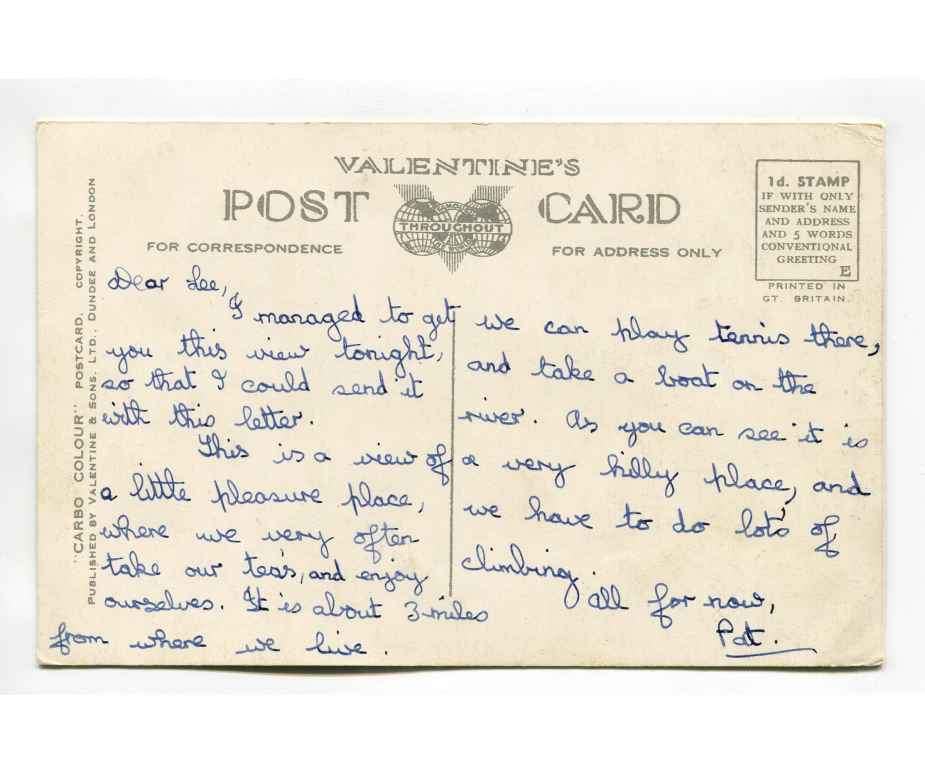 VALENTINE'S
POST CARD
FAMOUS
THROUGHOUT
THE WORLD
FOR CORRESPONDENCE
FOR ADDRESS ONLY
1d. STAMP
IF WITH ONLY
SENDER'S NAME
AND ADDRESS
AND 5 WORDS
CONVENTIONAL
GREETING
E
PRINTED IN
GT. BRITAIN.
"CARBO COLOUR" POSTCARD. COPYRIGHT.
PUBLISHED BY VALENTINE & SONS, LTD., DUNDEE AND LONDON
Dear Lee,
I managed to get
you this view tonight,
so that I could send it
with this letter.
This is a view of
a little pleasure place,
where we very often
take our tea's, and enjoy
ourselves. It is about 3 miles
from where we live.
we can play tennis there,
and take a boat on the
river. As you can see it is
a very hilly place, and
we have to do lot's of
climbing.
All for now,
Pat.